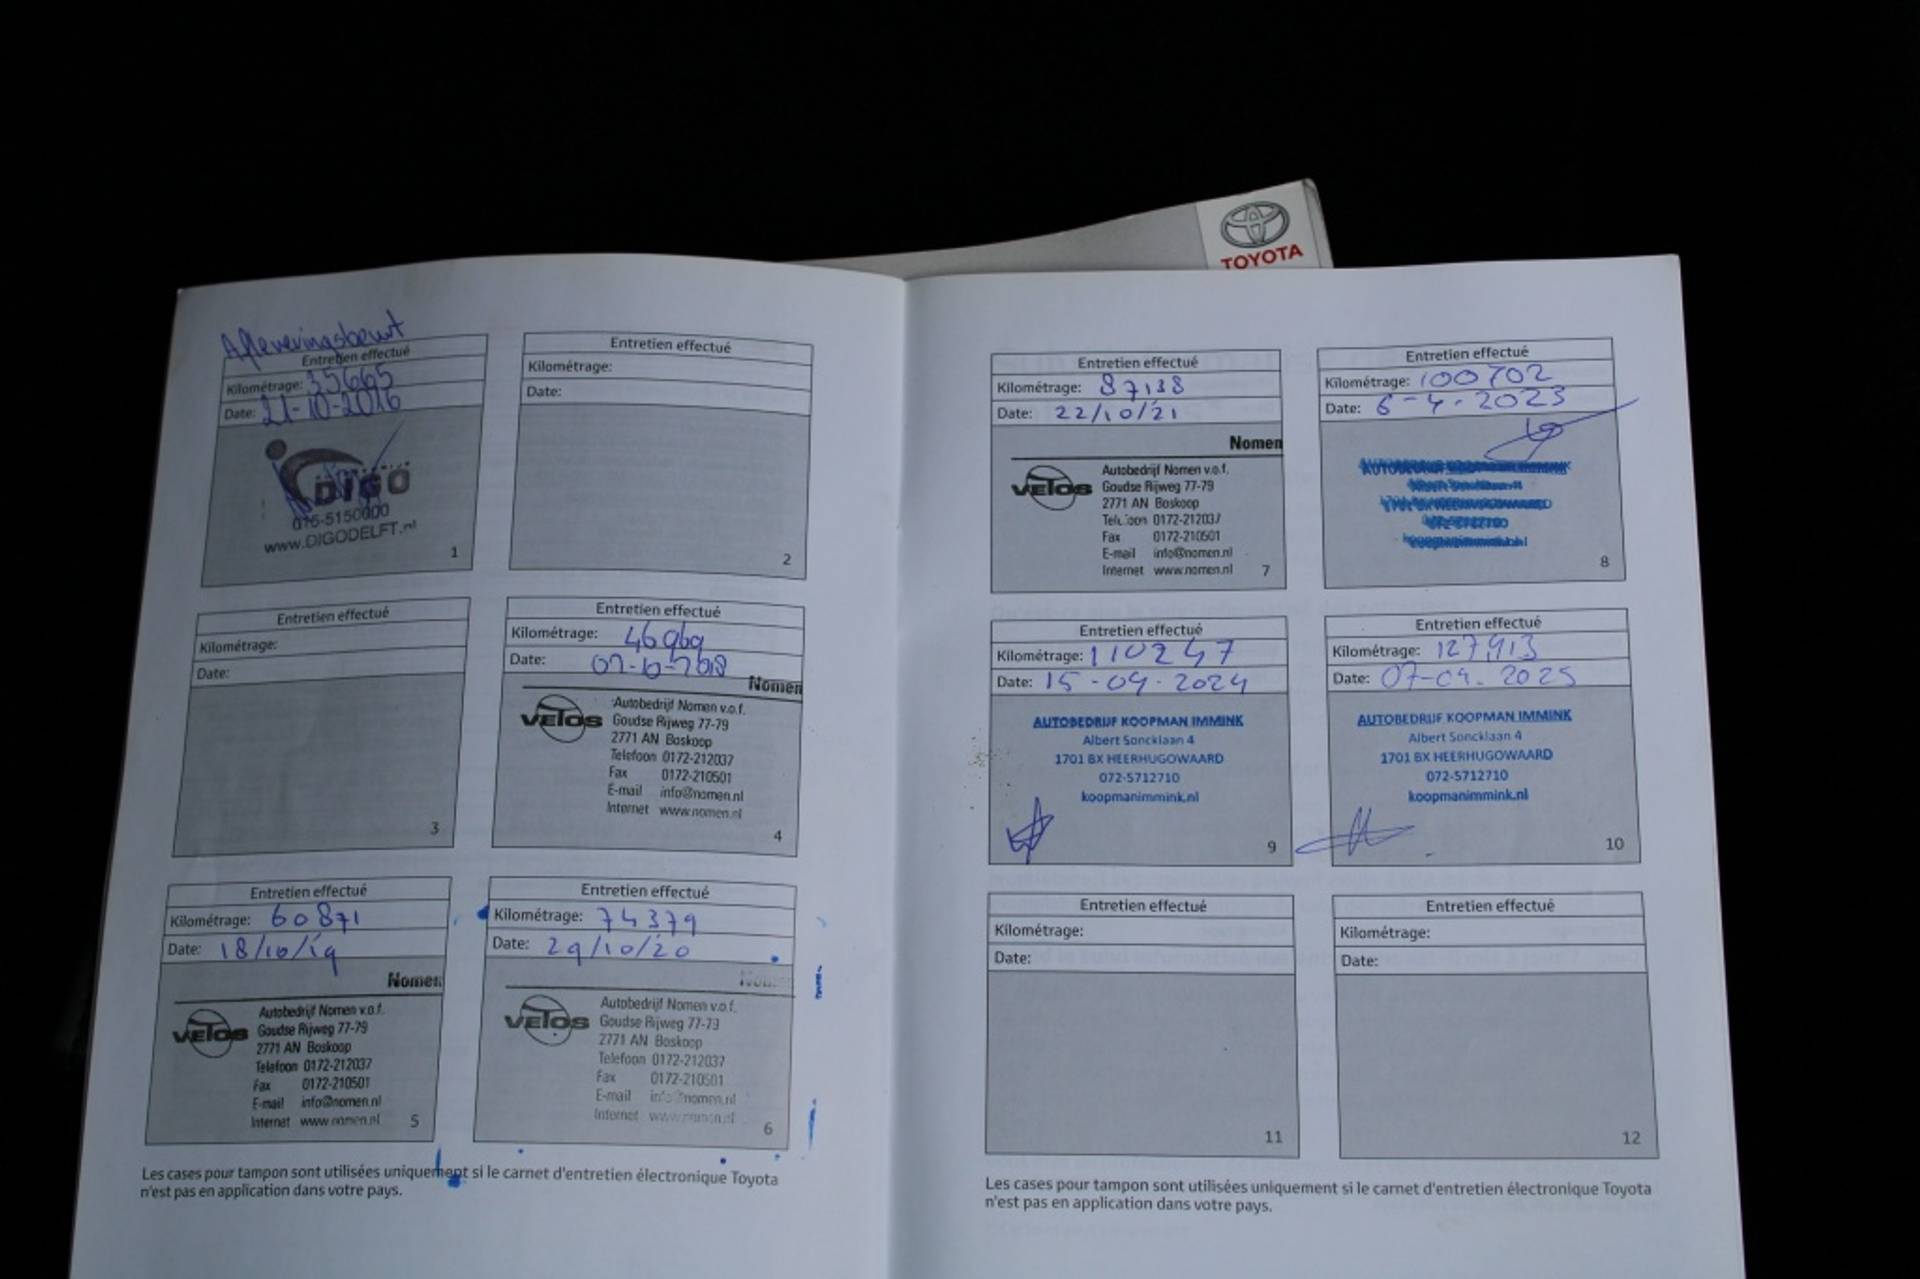 TOYOTA
Afleveringsbeurt
Entretien effectué
Kilométrage: 35665
Date: 21-10-2016
DIGO
015-5150000
www.DIGODELFT.nl
1
Entretien effectué
Kilométrage:
Date:
2
Entretien effectué
Kilométrage:
Date:
3
Entretien effectué
Kilométrage: 46969
Date: 02-10-2018
Nomen
VELOS
Autobedrijf Nomen v.o.f.
Goudse Rijweg 77-79
2771 AN Boskoop
Telefoon 0172-212037
Fax 0172-210501
E-mail info@nomen.nl
Internet www.nomen.nl
4
Entretien effectué
Kilométrage: 60871
Date: 18/10/19
Nomen
VELOS
Autobedrijf Nomen v.o.f.
Goudse Rijweg 77-79
2771 AN Boskoop
Telefoon 0172-212037
Fax 0172-210501
E-mail info@nomen.nl
Internet www.nomen.nl
5
Entretien effectué
Kilométrage: 74379
Date: 29/10/20
Nomen
VELOS
Autobedrijf Nomen v.o.f.
Goudse Rijweg 77-79
2771 AN Boskoop
Telefoon 0172-212037
Fax 0172-210501
E-mail info@nomen.nl
Internet www.nomen.nl
6
Les cases pour tampon sont utilisées uniquement si le carnet d'entretien électronique Toyota
n'est pas en application dans votre pays.
Entretien effectué
Kilométrage: 87138
Date: 22/10/21
Nomen
VELOS
Autobedrijf Nomen v.o.f.
Goudse Rijweg 77-79
2771 AN Boskoop
Telefoon 0172-212037
Fax 0172-210501
E-mail info@nomen.nl
Internet www.nomen.nl
7
Entretien effectué
Kilométrage: 100702
Date: 6-4-2023
AUTOBEDRIJF KOOPMAN IMMINK
1701 BX HEERHUGOWAARD
072-5712710
koopmanimmink.nl
8
Entretien effectué
Kilométrage: 110247
Date: 15-04-2024
AUTOBEDRIJF KOOPMAN IMMINK
Albert Soncklaan 4
1701 BX HEERHUGOWAARD
072-5712710
koopmanimmink.nl
9
Entretien effectué
Kilométrage: 127,913
Date: 07-04-2025
AUTOBEDRIJF KOOPMAN IMMINK
Albert Soncklaan 4
1701 BX HEERHUGOWAARD
072-5712710
koopmanimmink.nl
10
Entretien effectué
Kilométrage:
Date:
11
Entretien effectué
Kilométrage:
Date:
12
Les cases pour tampon sont utilisées uniquement si le carnet d'entretien électronique Toyota
n'est pas en application dans votre pays.